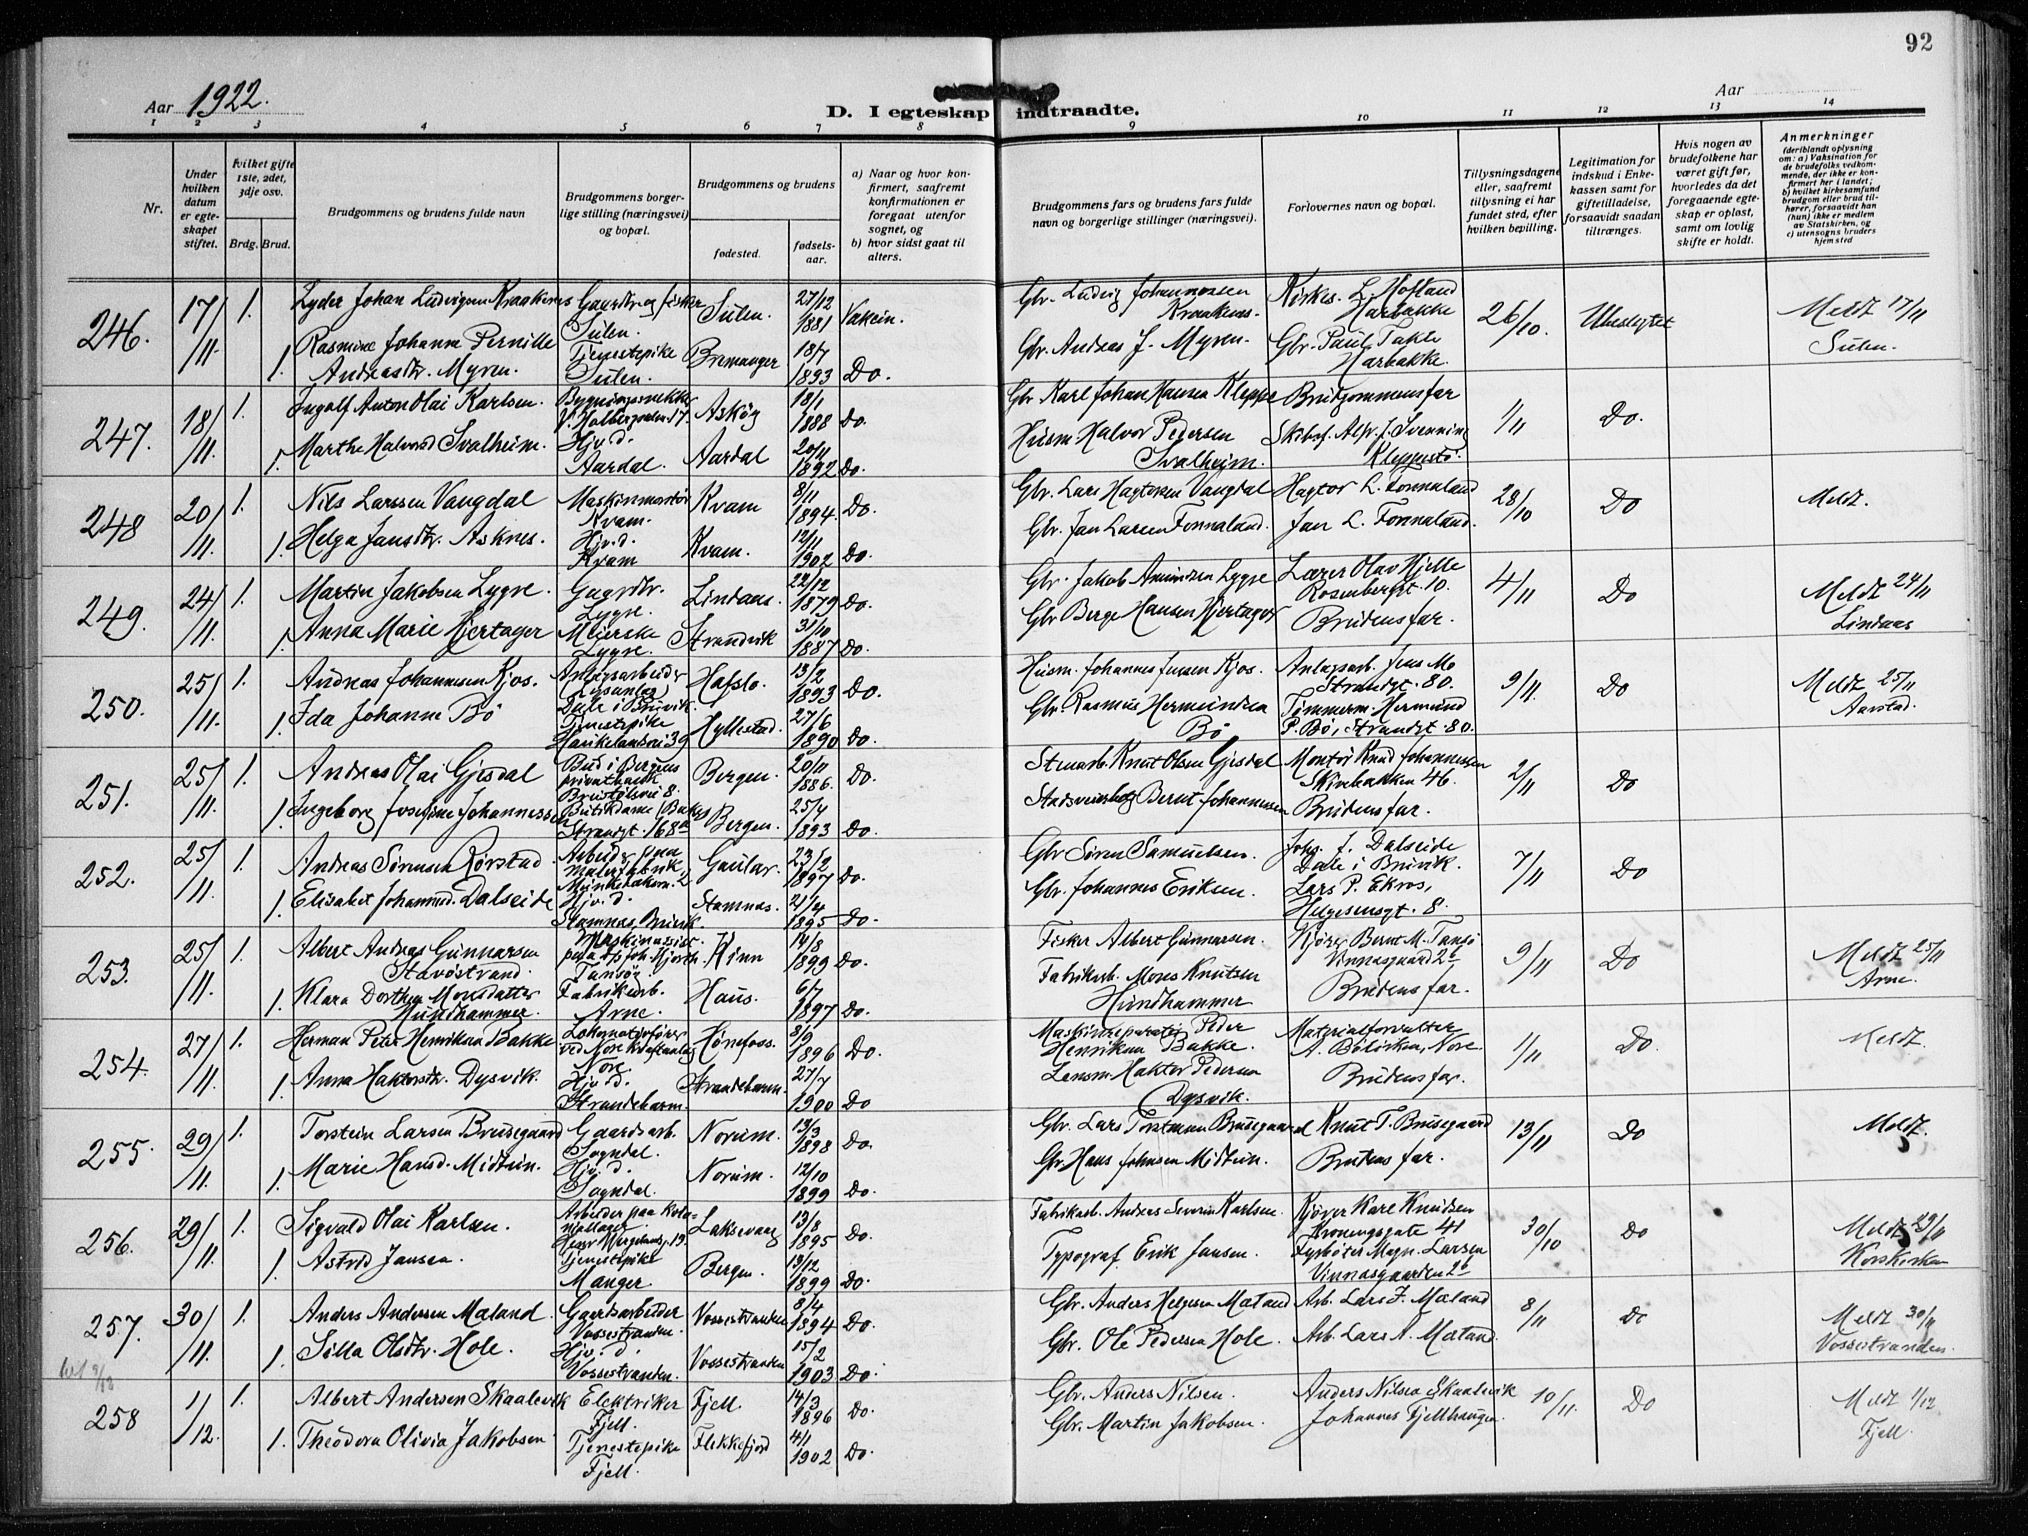 92
Aar 1922.
Aar
D. I egteskap indtraadte.
1 2 3 4 5 6 7 8 9 10 11 12 13 14
Nr.
Under hvilken datum er egteskapet stiftet.
Hvilket gifte 1ste, 2det, 3dje osv.
Brdg. Brud.
Brudgommens og brudens fulde navn
Brudgommens borgerlige stilling (næringsvei) og bopæl.
Brudgommens og brudens
fødested.
fødselsaar.
a) Naar og hvor konfirmert, saafremt konfirmationen er foregaat utenfor sognet, og
b) hvor sidst gaat til alters.
Brudgommens fars og brudens fars fulde navn og borgerlige stillinger (næringsvei).
Forlovernes navn og bopæl.
Tillysningsdagene eller, saafremt tillysning ei har fundet sted, efter hvilken bevilling.
Legitimation for indskud i Enkekassen samt for giftetilladelse, forsaavidt saadan tiltrænges.
Hvis nogen av brudefolkene har været gift før, hvorledes da det foregaaende egteskap er opløst, samt om lovlig skifte er holdt.
Anmerkninger (deriblandt oplysning om: a) Vaksination for de brudefolks vedkommende, der ikke er konfirmert her i landet; b) hvilket kirkesamfund brudgom eller brud tilhører, forsaavidt han (hun) ikke er medlem av Statskirken, og c) utensogns bruders hjemsted
246. 17/11. 1. Lyder Johan Ludvigsen Kraakenes Gaardbr. og fisker Sulen. Sulen. 27/12 1881 Vakcin. Gbr. Ludvig Johannessen Kraakenes. Kirkes. L. Hofland Harbakke 26/10. Ubeslegtet Meldt 17/11 Sulen.
1. Rasmine Johanne Pernille Andreasdtr. Myren. Tjenestepike Sulen. Bremanger 18/7 1893 Do. Gbr. Andreas J. Myren. Gbr. Paul Takle Harbakke.
247. 18/11. 1. Ingolf Anton Olai Karlsen. Bygningssnekker Askøy 18/1 1888 Do. Gbr Karl Johan Hansen Kleppe Brudgommens far 1/11 Do.
1. Marthe Halvorsd Svalheim. Hjv. d. Aardal. Aardal 20/11 1892 Do. Husm Halvor Pedersen Svalheim. Kleppestø.
248 20/11. 1. Nils Larssen Vangdal Maskinmontør Kvam. Kvam 8/11 1894. Do. Gbr. Lars Hagtorsen Vangdal Hagtor L. Fonnaland 28/10 Do Meldt.
1. Helga Jansdtr. Asknes. Hjv. d. Kvam Kvam. 12/11 1902 Do. Gbr. Jan Larsen Fonnaland. Jan L. Fonnaland.
249. 24/11. 1. Martin Jakobsen Lygre. Gaardbr. Lygre. Lindaas. 22/12 1879 Do. Gbr. Jakob Amundsen Lygre Lærer Olav Hjelle Rosenbergt. 10. 4/11 Do Meldt 24/11 Lindaas
1. Anna Marie Hjertager Meierske Lygre. Strandvik 31/10 1887 Do. Gbr Berge Hansen Hjertager Brudens far.
250. 25/11. 1. Andreas Johannesen Kjos. Anlægsarbeider Dale i Bruvik. Hafslo. 13/2 1893 Do. Husm. Johannes Jensen Kjos. Anlægsarb. Jens Mo Strandgt. 80. 9/11 Do Meldt 25/11 Aarstad.
1. Ida Johanne Bö Tjenestepike Haukelandsvei 39 Hyllestad. 27/6 1890 Do. Gbr. Rasmus Hermundsen Bö Tömmerm. Hermund P. Bö, Strandgt. 80.
251. 25/11. 1. Andreas Olai Gjesdal Bud i Bergens privatbank 8. Bergen. 20/11 1886. Do. Stenarb. Knut Olsen Gjesdal Montør Knud Johannessen Skivebakken 46. 2/11 Do
1. Ingeborg Josefine Johannessen Butikdame Strandgt. 168a Bergen. 25/4 1893 Do. Bernt Johannessen Brudens far.
252. 25/11. 1. Andreas Sörensen Rörstad Arbeider Gaular. 23/2 1897 Do. Gbr Sören Samuelsen. Johs. J. Dalseide Dale i Bruvik. 7/11 Do
1. Elisabet Johannesd. Dalseide Hjv. d. Stamnes, Bruvik. Stamnes. 21/4 1895 Do. Gbr. Johannes Eriksen. Lars P. Ekros, Helgesensgt. 8.
253. 25/11. 1. Albert Andreas Gunnarsen Stavöstrand. Maskinassist. Tansöy. Kinn 14/8 1899 Do. Fisker Albert Gunnarsen. Kjører Bernt M. Tansö Vinnasgaard 2b 9/11 Do Meldt 25/11 Arne.
1. Klara Dorthea Monsdatter Hundhammer. Fabrikarb. Arne. Haus. 6/7 1897 Do. Fabrikarb. Mons Knutsen Hundhammer Brudens far.
254. 27/11. 1. Herman Peter Henriksen Bakke Lokomotivförer ved Nore Kraftanlæg Nore Hönefoss. 8/9 1896 Do. Maskinreparatør Peder Henriksen Bakke. Materialforvalter A. Bölviken, Nore. 1/11 Do. Meldt.
1. Anna Haktorsdtr. Dysvik. Hjv. d. Strandebarm. Strandebarm. 27/7 1900 Do Lensm. Haktor Pedersen Dysvik. Brudens far.
255. 29/11. 1. Torstein Larsen Brusegaard Gaardsarb. Sogndal. Norum. 13/3 1898 Do. Gbr. Lars Torstensen Brusegaard Knut T. Brusegaard 13/11 Do Meldt.
1. Marie Hansd. Midtun. Hjv. d. Sogndal. Norum. 12/10 1899 Do. Gbr Hans Johnsen Midtun. Brudens far.
256. 29/11. 1. Sigvald Olai Karlsen. Arbeider paa kolonjallager. Henr. Wergelandsg. 19. Laksevaag 13/8 1895 Do. Fabrikarb. Anders Severin Karlsen. Kjører Karl Knudsen Kroningsgate 41 30/10 Do Meldt 29/11 Korskirken
1. Astrid Jansen. Tjenestepike Manger Bergen. 13/12 1899 Do. Typograf Erik Jansen. Fyrböter Magn. Larsen Vinnasgaarden 2b
257. 30/11. 1. Anders Andersen Mæland. Gaardsarbeider Vossestranden. Vossestranden 8/4 1894 Do. Gbr. Anders Helgesen Mæland Arb. Lars J. Mæland 8/11 Do Meldt 30/11 Vossestranden.
1. Silla Olsdtr. Hole. Hjv. d. Vossestranden. Vossestranden 15/2 1903 Do. Gbr. Ole Pedersen Hole. Arb. Lars A. Mæland.
258 1/12. 1. Albert Andersen Skaalevik Elektriker Fjell. Fjell. 14/3 1896 Do. Gbr. Anders Nilsen. Anders Nilsen Skaalevik 10/11. Do Meldt 1/12 Fjell.
1. Theodora Olivia Jakobsen Tjenestepike Fjell. Flekkefjord 4/1 1902 Do. Gbr. Martin Jakobsen. Johannes Fjellhaugen